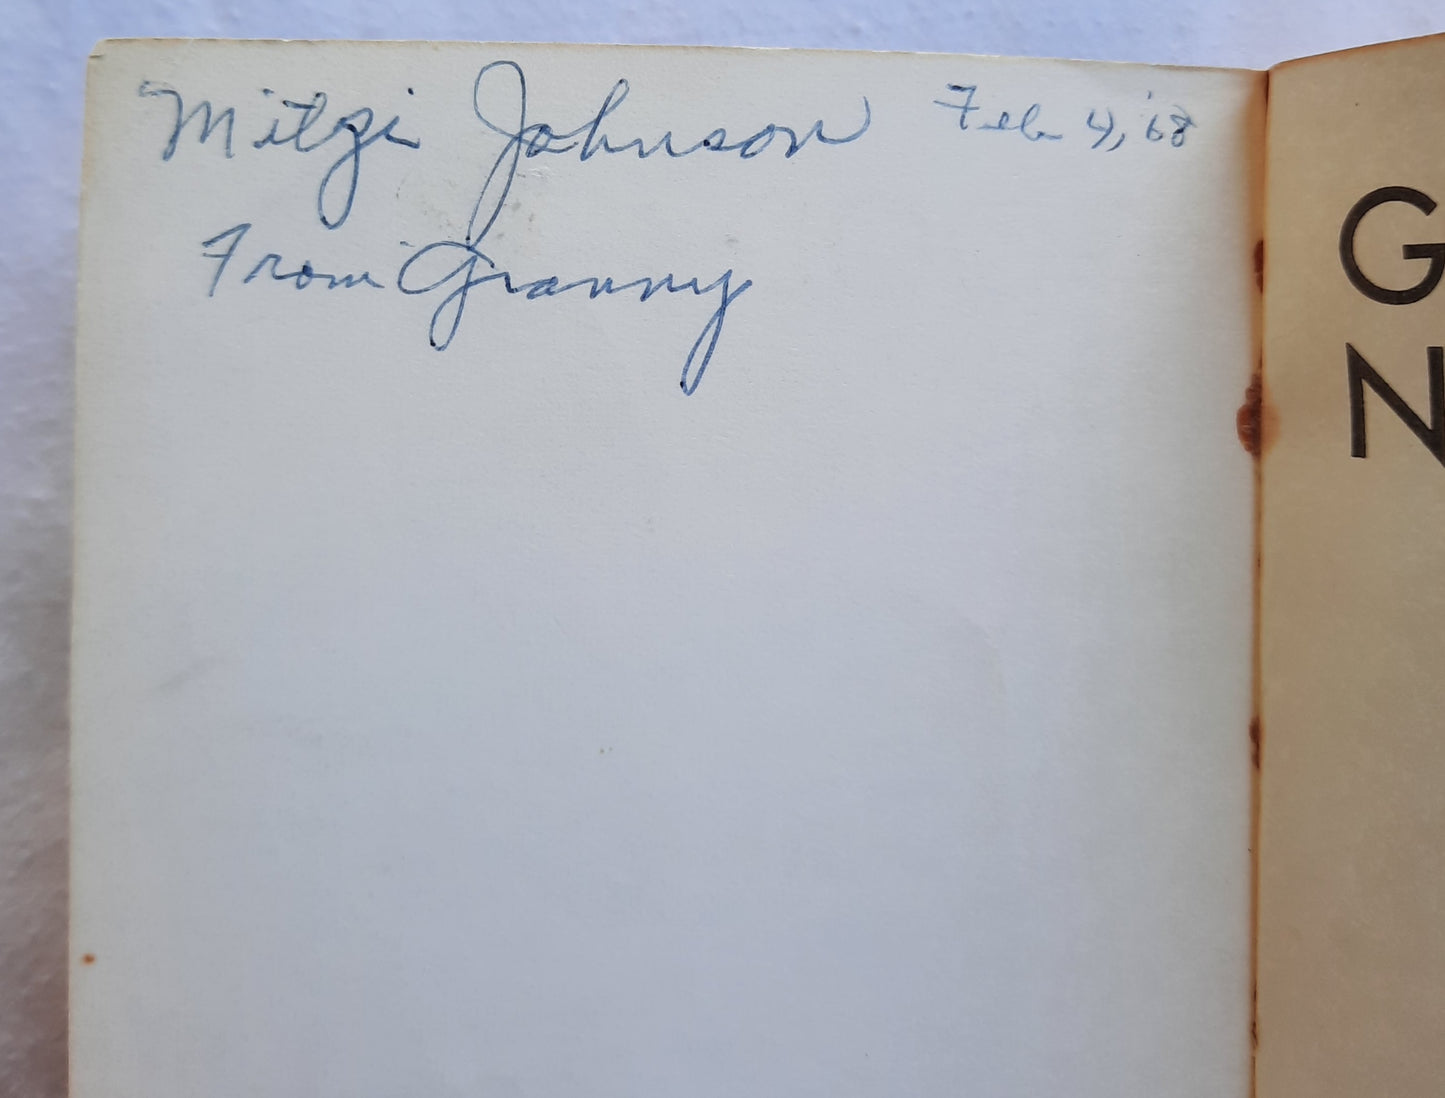 Mitzi Johnson Feb 4, '68
From Granny
G
N